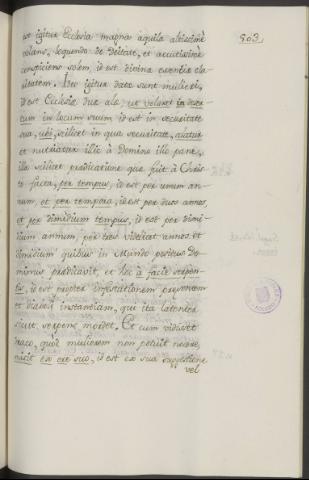 503.
est igitur Ecclesia magna aquila altissimè
volans, loquendo de Deitate, et acutissimè
conspiciens solem, id est divinæ essentiæ cla
ritatem. Hæ igitur datæ sunt mulieri,
id est Ecclesiæ duæ alæ, ut volaret in deser
tum in locum suum, id est in securitate
sua, ubi, scilicet in qua securitate, alatur
et nutriatur illic à Domino illo pane,
illa scilicet prædicatione quæ fuit à Chris
to facta, per tempus, id est per unum an
num, et per tempora, id est per duos annos,
et per dimidium tempus, id est per dimi
dium annum, per tres videlicet annos et
dimidium quibus in Mundo Do
minus prædicavit, et hoc à facie serpen
tis, id est propter infestationem
et diaboli instantiam, qui ita latenter
sicut serpens mordet. Et cum vidisset
Draco, quod mulierem non potuit nocere,
misit ex ore suo, id est ex sua suggestione
vel